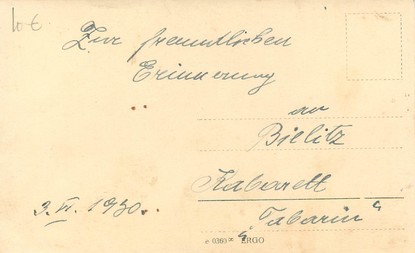 10 €
Zur freundlichen
Erinnerung
an
Bielitz
Kabarett
"Tabarin"
3. VI. 1930.
e 0360 ERGO